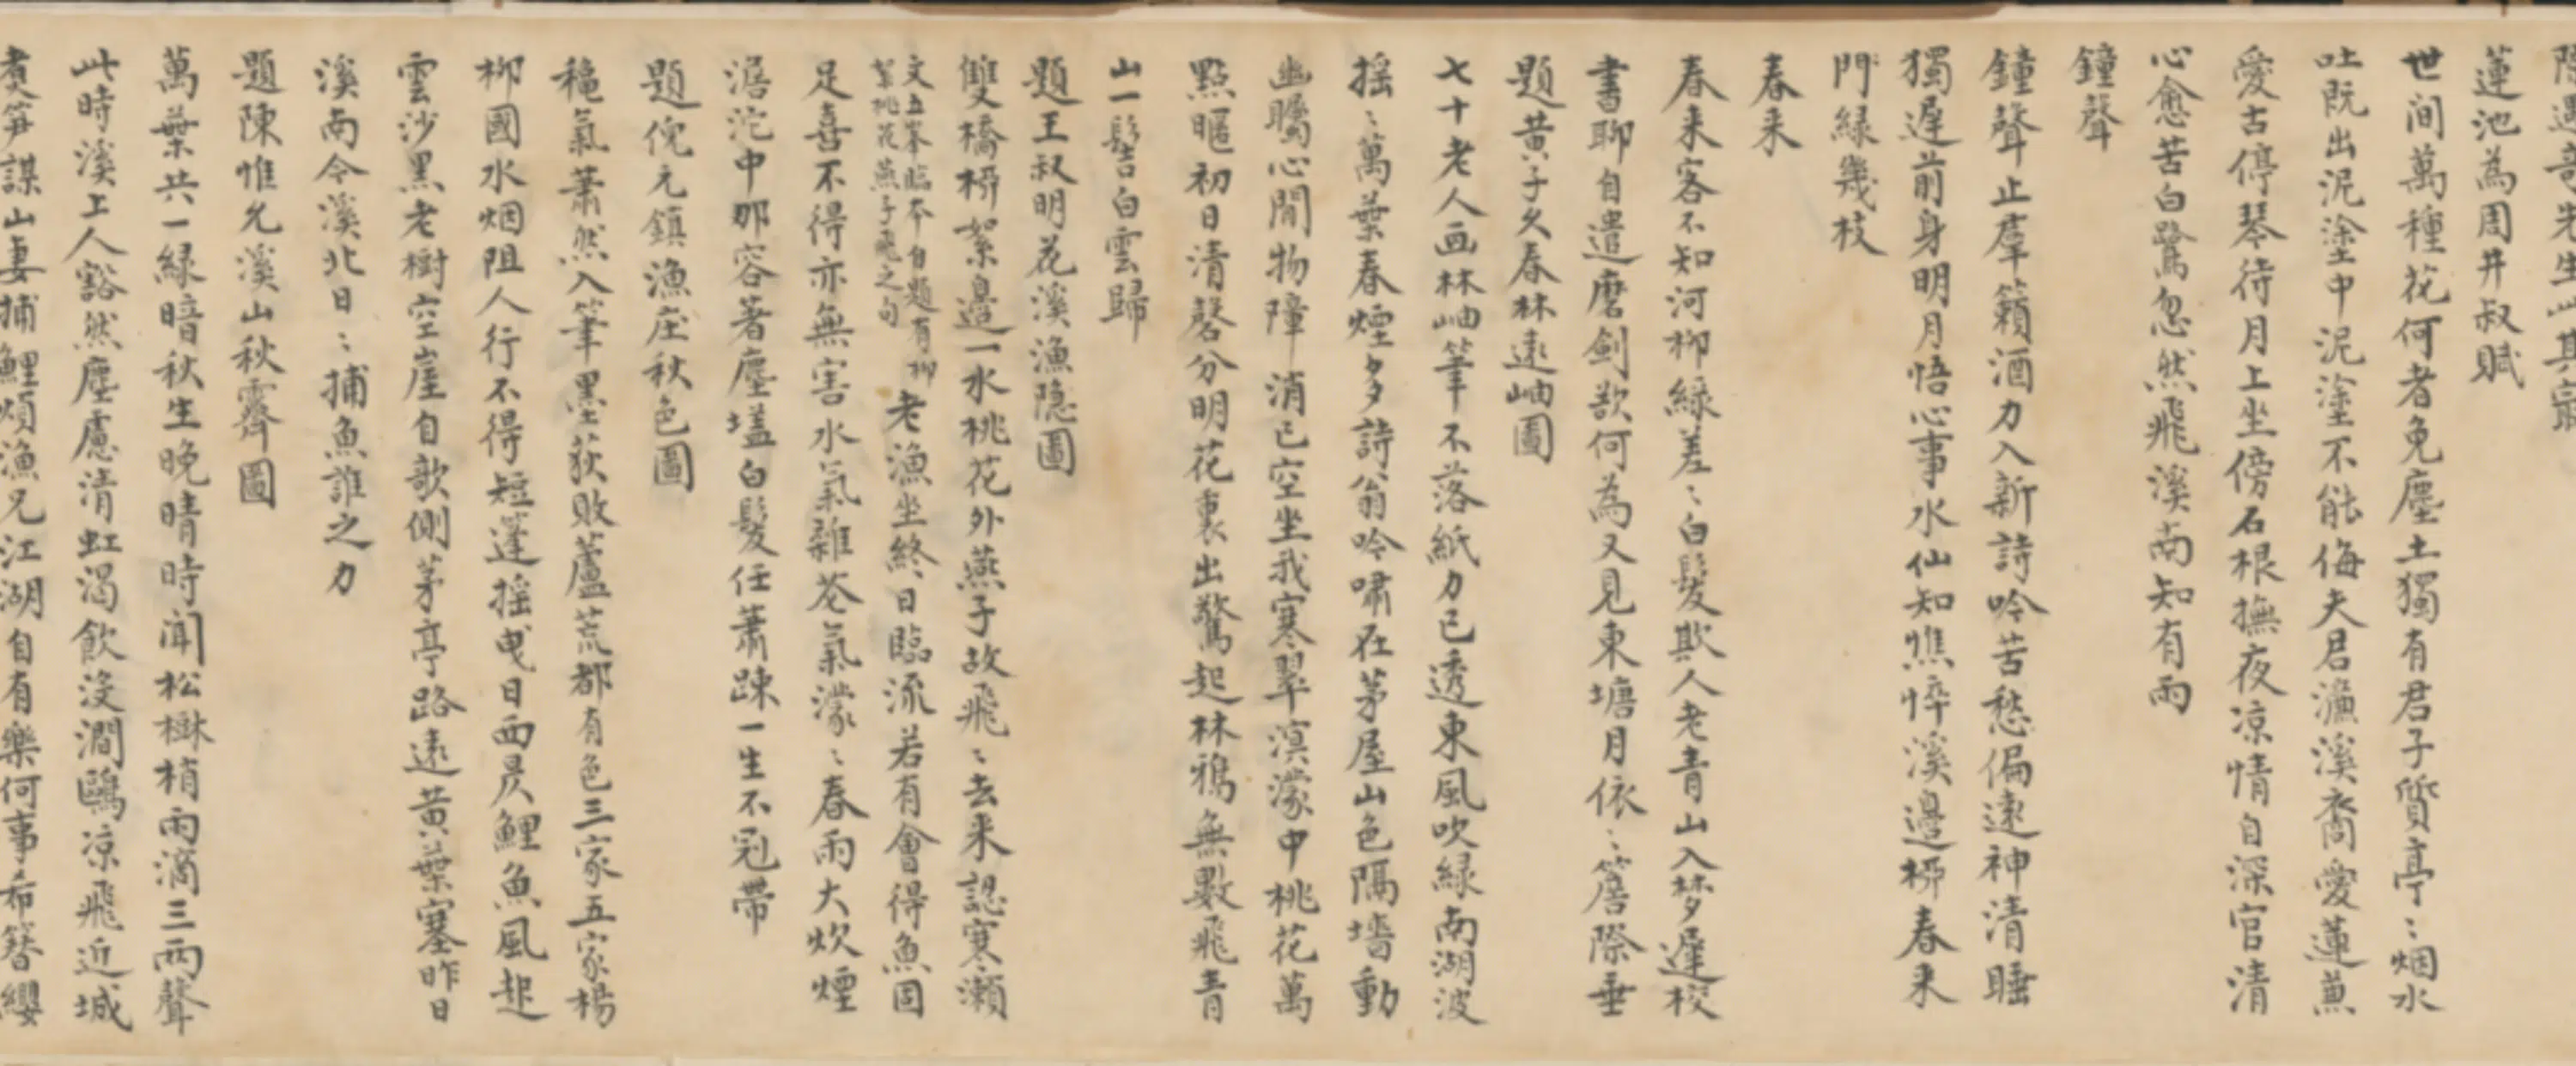 隠過訪先生此其
蓮池為周井叔賦
世间萬種花何者免塵土獨有君子質亭:烟水
吐既出泥塗中泥塗不能侮夫君濂溪裔愛蓮兼
愛古停琴待月上坐傍石根撫夜凉情自深官清
心愈苦白鷺忽然飛溪南知有雨
鐘聲
鐘聲止羣籟酒力入新詩吟苦愁偏遠神清睡
獨遲前身明月悟心事水仙知憔悴溪邊柳春来
門緑幾枝
春来
春来客不知河柳緑差:白髮欺人老青山入梦遲校
書聊自遣磨劍欲何為又見東塘月依:簷際垂
題黄子久春林遠岫圖
七十老人画林岫筆不落紙力已透東風吹緑南湖波
摇:萬葉春煙多詩翁吟嘯在茅屋山色隔墻動
幽矚心閒物障消已空坐我寒翠溟濛中桃花萬
點暱初日清磬分明花裏出驚起林鴉無數飛青
山一髻白雲歸
題王叔明花溪漁隐圖
雙橋柳絮邊一水桃花外燕子故飛:去来認寒瀨
文五峯臨本自題有柳
絮桃花燕子飛之句
老漁坐終日臨流若有會得魚固
足喜不得亦無害水氣雜花氣濛:春雨大炊煙
澹沱中那容著塵壒白髮任蕭踈一生不冠帶
題倪元鎮漁庄秋色圖
穐氣蕭然入筆墨荻敗蘆荒都有色三家五家楊
柳國水烟阻人行不得短蓬摇曳日西昃鯉魚風起
雲沙黑老樹空崖自歌側茅亭路遠黄葉塞昨日
溪南今溪北日:捕魚誰之力
題陳惟允溪山秋霽圖
萬葉共一緑暗秋生晚晴時闻松樹梢雨滴三兩聲
此時溪上人豁然塵慮清虹渴飲沒澗鷗凉飛近城
煮笋謀山妻捕鯉煩漁兄江湖自有樂何事希簪纓